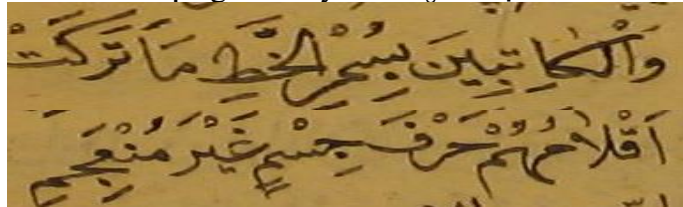 وَالْكَاتِبِينَ بِسُمْرِ الْخَطِّ مَا تَرَكَتْ
اَقْلَامُهُمْ حَرْفَ جِسْمٍ غَيْرَ مُنْعَجِمِ